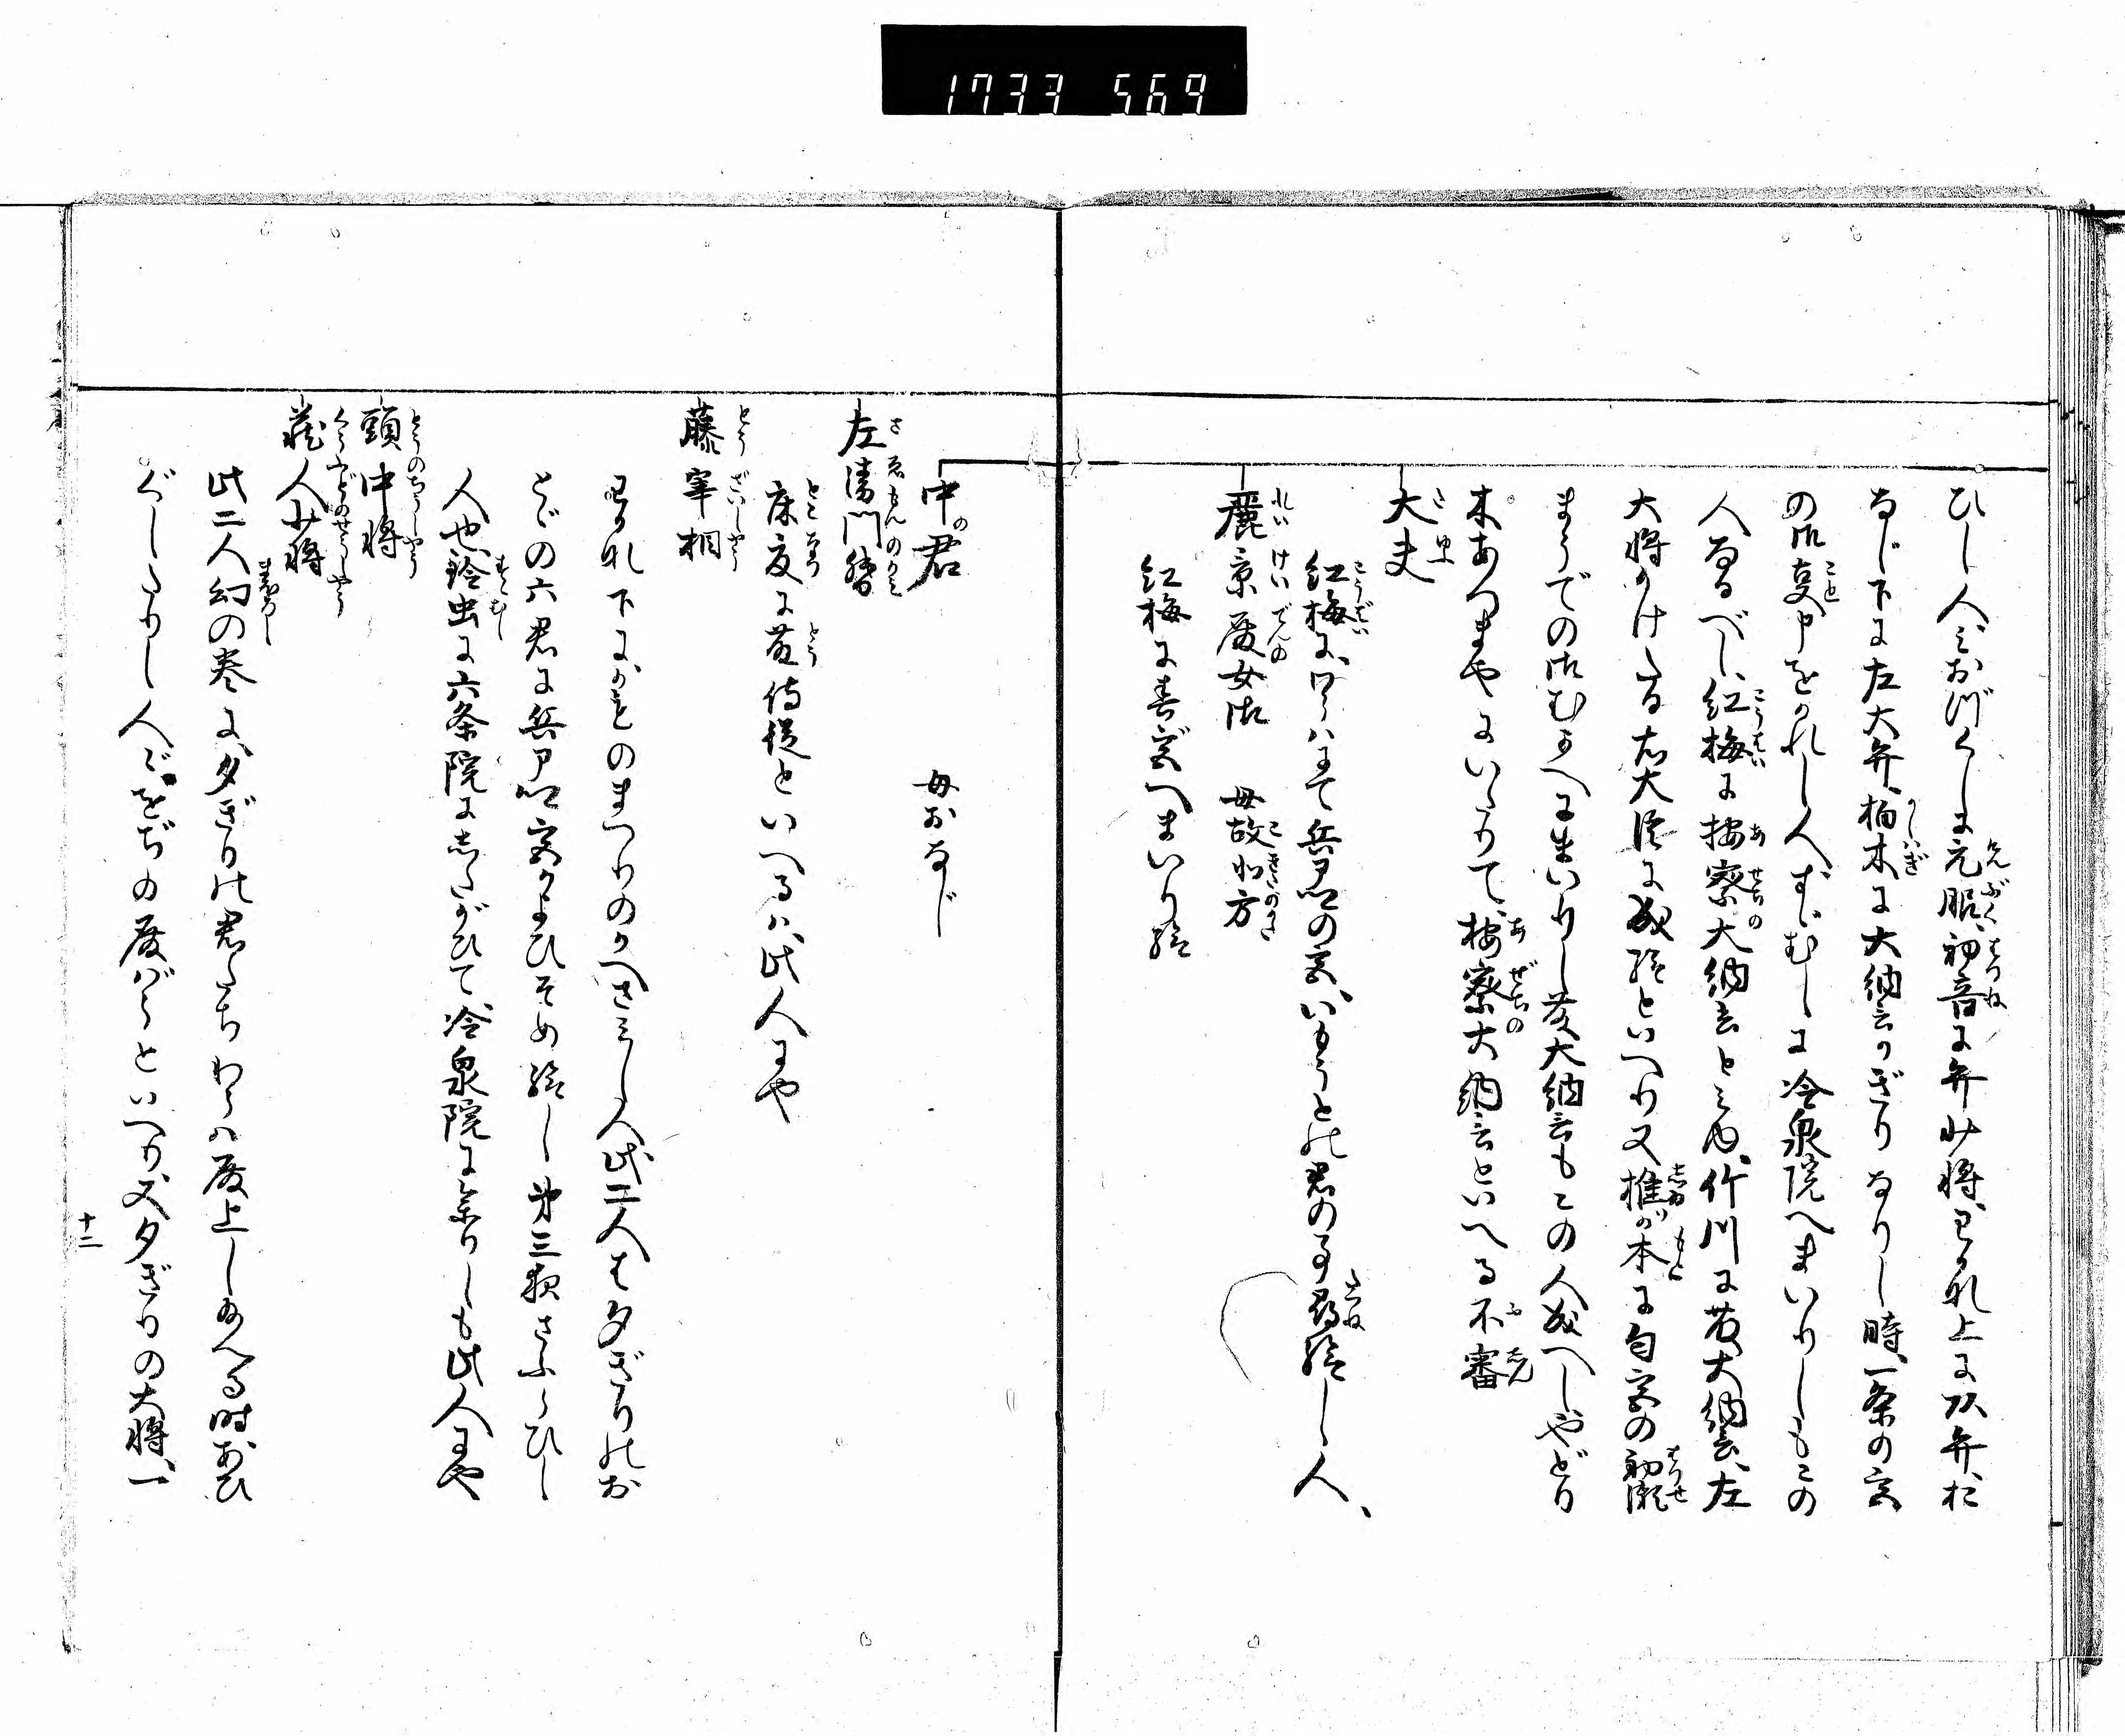 1733 569
ひし人しおなじくしま元服、初音に弁少将、わかな上に頭弁、お
なじ下に左大弁、柏木に大納言かぎりなりし時、一条の宮
の御事申をかれし人、すゞむしに冷泉院へまいりしもこの
人なるべし、紅梅に按察大納言とみゆ、竹川に藤大納言、左
大将かけたる右大臣に成給といへり又椎が本に匂宮の初瀬
まうでの御むかへにまいりし藤大納言もこの人成へしやどり
木あづまやにいたりて、按察大納言といへる不審
大夫
紅梅に、わらはにて兵部卿の宮、いもうとの君の事尋給し人、
麗景殿女御 母故北方
紅梅に春宮へまいり給
中の君 母おなじ
左衛門督
床夏に藤侍従といへるは、此人にや
藤宰相
わかな下にかものまつりのかへさみし人此二人は夕ぎりのお
とゞの六君に兵部卿宮かよひそめ給し第三夜さふらひし
人也、鈴虫に六条院にしたがひて、冷泉院に参りしも此人にや
頭中将
蔵人少将
此二人幻の巻に、夕ぎりの君たちわらは殿上しあへる時おひ
ぐしたりし人〴〵をぢの殿ばらといへり、又夕ぎりの大将、一
十二